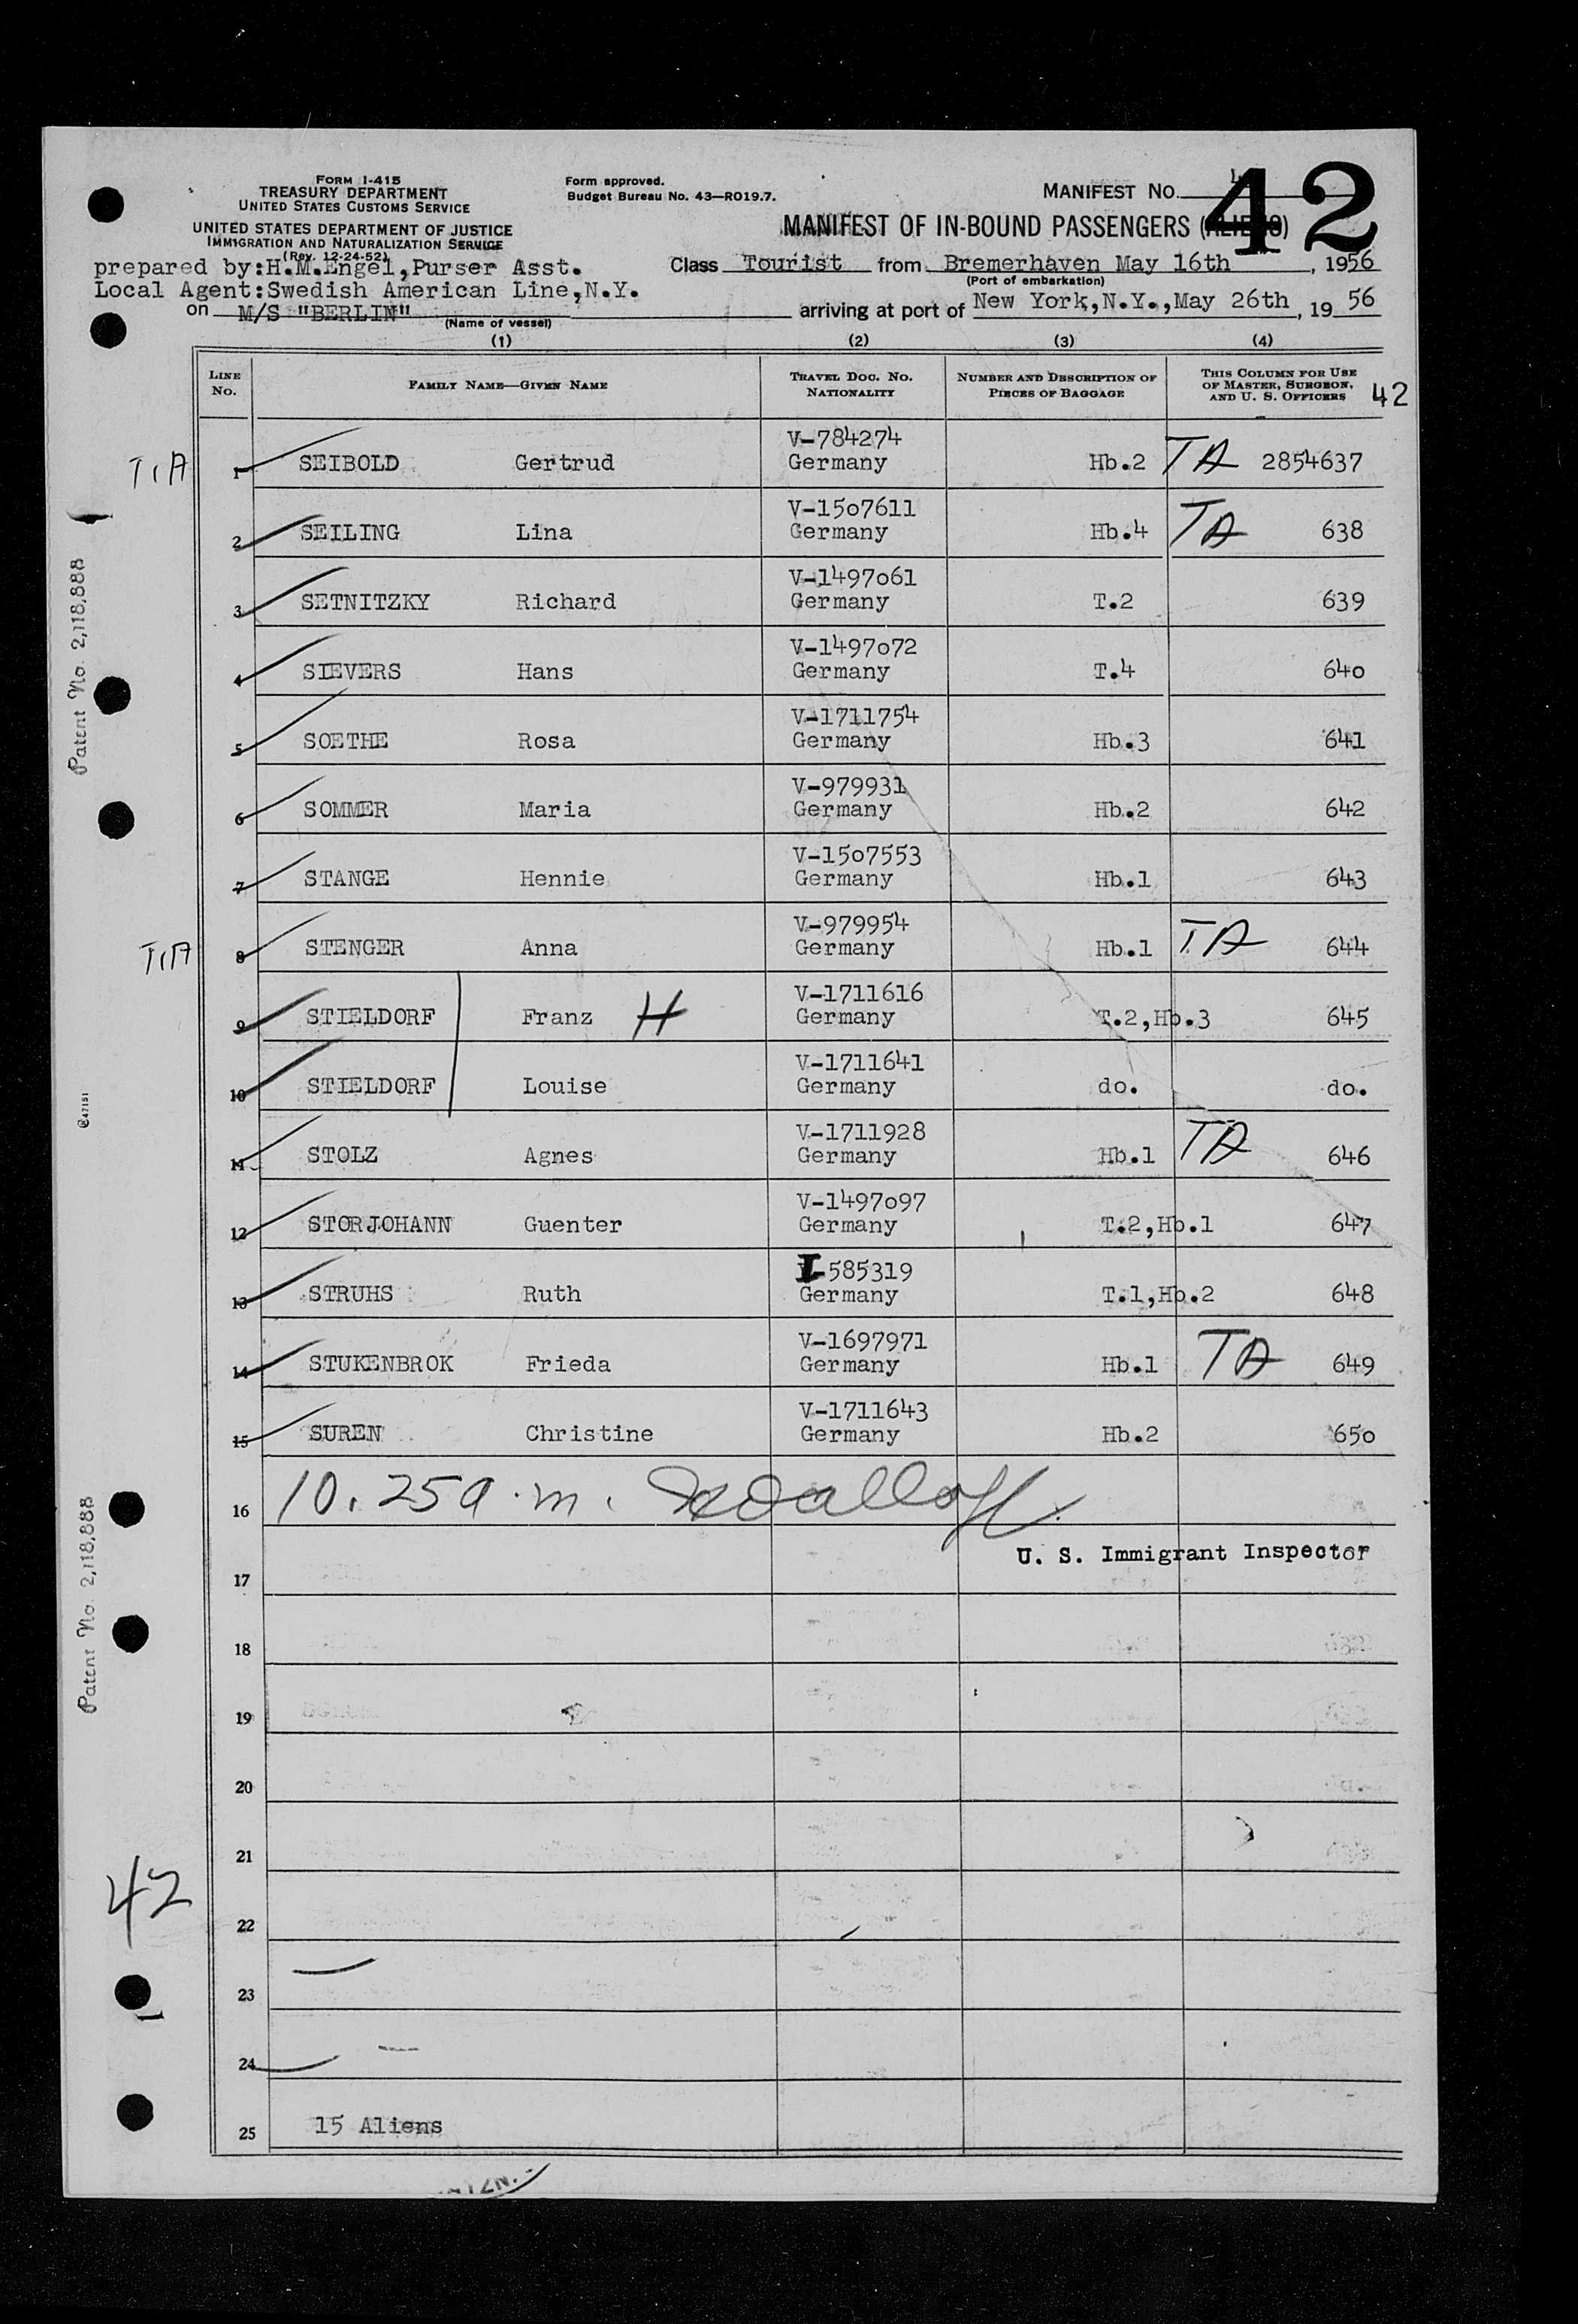 42
FORM I-415
TREASURY DEPARTMENT
UNITED STATES CUSTOMS SERVICE
UNITED STATES DEPARTMENT OF JUSTICE
IMMIGRATION AND NATURALIZATION SERVICE
(Rev. 12-24-52)
Form approved.
Budget Bureau No. 43—R019.7.
MANIFEST NO.
MANIFEST OF IN-BOUND PASSENGERS (ALIENS)
prepared by:H.M.Engel,Purser Asst.
Class Tourist from Bremerhaven May 16th, 1956
(Port of embarkation)
Local Agent:Swedish American Line,N.Y.
on M/S "BERLIN"
(Name of vessel)
arriving at port of New York,N.Y.,May 26th, 19 56
(1) (2) (3) (4)
LINE NO. FAMILY NAME—GIVEN NAME TRAVEL DOC. NO. NATIONALITY NUMBER AND DESCRIPTION OF PIECES OF BAGGAGE THIS COLUMN FOR USE OF MASTER, SURGEON, AND U. S. OFFICERS 42
V-784274
TIA 1 SEIBOLD Gertrud Germany Hb.2 TA 2854637
V-1507611
2 SEILING Lina Germany Hb.4 TA 638
V-1497061
3 SETNITZKY Richard Germany T.2 639
V-1497072
4 SIEVERS Hans Germany T.4 640
V-1711754
5 SOETHE Rosa Germany Hb.3 641
V-979931
6 SOMMER Maria Germany Hb.2 642
V-1507553
7 STANGE Hennie Germany Hb.1 643
V-979954
TIA 8 STENGER Anna Germany Hb.1 TA 644
V-1711616
9 STIELDORF Franz H Germany T.2,Hb.3 645
V-1711641
10 STIELDORF Louise Germany do. do.
V-1711928
11 STOLZ Agnes Germany Hb.1 TA 646
V-1497097
12 STORJOHANN Guenter Germany T.2,Hb.1 647
I-585319
13 STRUHS Ruth Germany T.1,Hb.2 648
V-1697971
14 STUKENBROK Frieda Germany Hb.1 TA 649
V-1711643
15 SUREN Christine Germany Hb.2 650
16 10.25 a.m.
U. S. Immigrant Inspector
17
18
19
20
21
22
23
24
25 15 Aliens
42
Patent No. 2,118,888
Patent No. 2,118,888